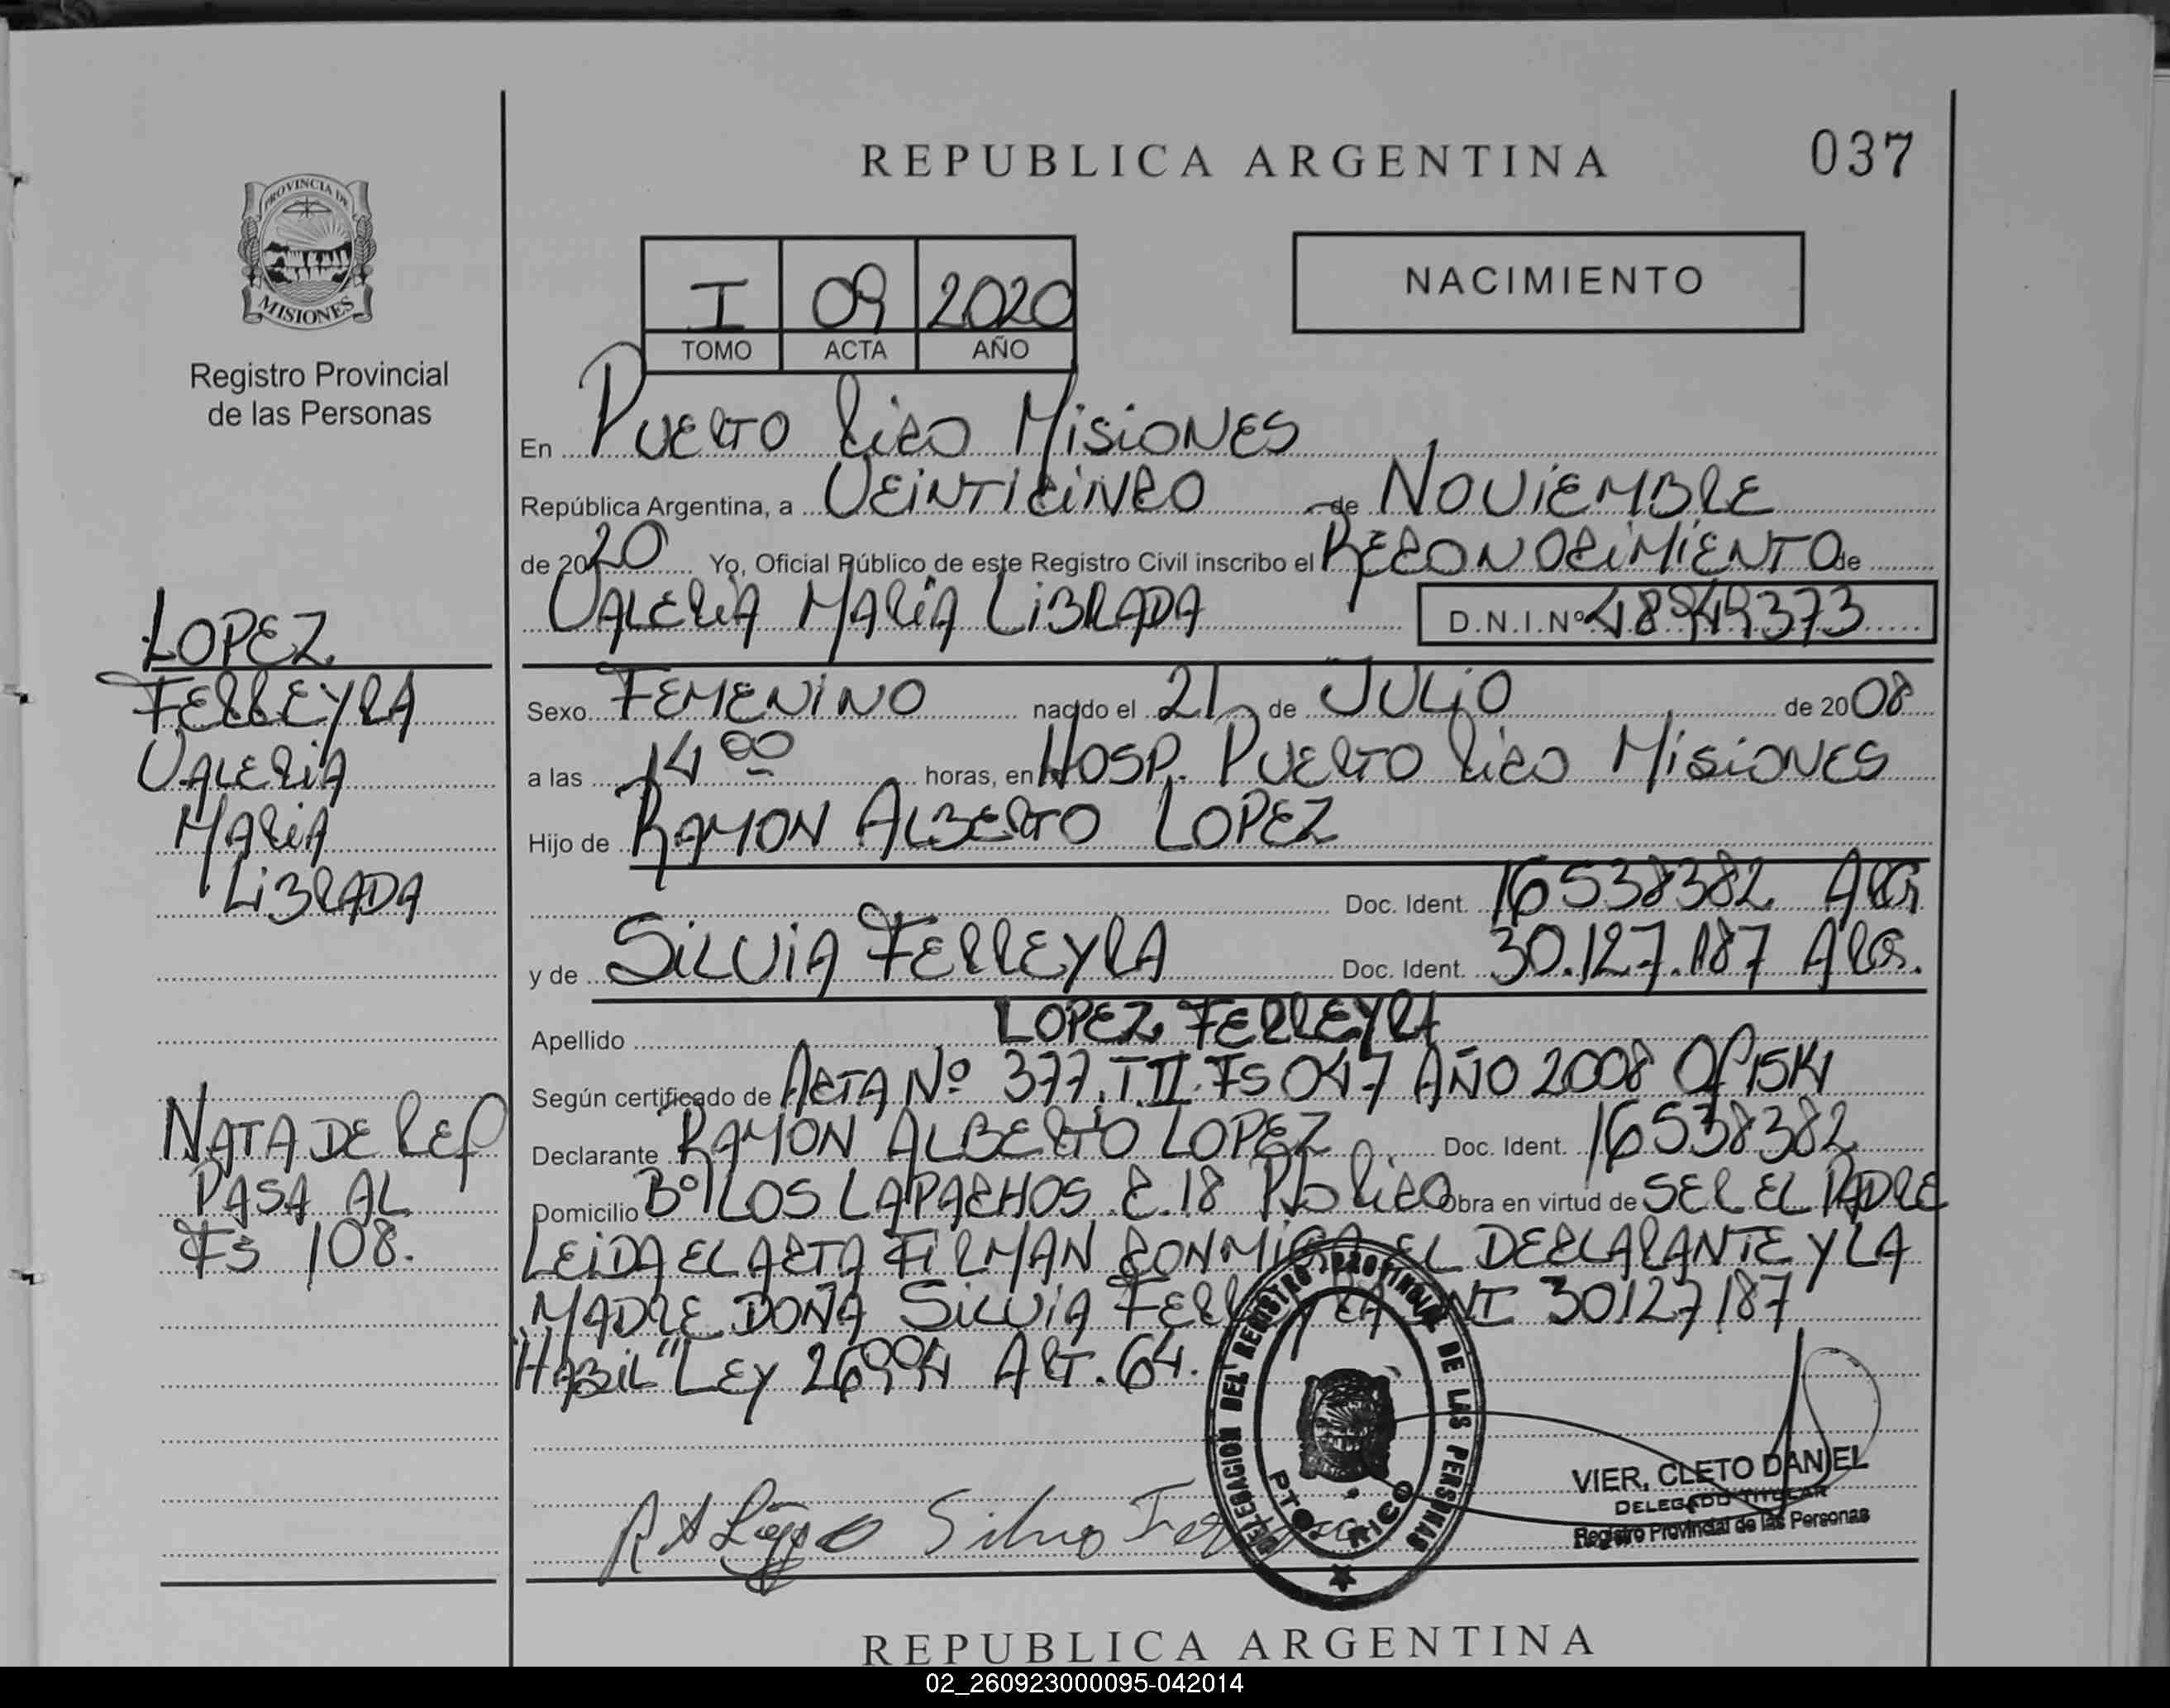 REPUBLICA ARGENTINA
037
PROVINCIA DE
MISIONES
Registro Provincial
de las Personas
I 09 2020
TOMO ACTA AÑO
NACIMIENTO
En PUERTO RICO MISIONES
República Argentina, a VEINTICINCO de NOVIEMBRE
de 2020 Yo, Oficial Público de este Registro Civil inscribo el RECONOCIMIENTO de
VALERIA MARIA LIBRADA D.N.I.Nº 48949373
LOPEZ
FERREYRA
VALERIA
MARIA
LIBRADA
Sexo FEMENINO nacido el 21 de JULIO de 2008
a las 14 00 horas, en HOSP. PUERTO RICO MISIONES
Hijo de RAMON ALBERTO LOPEZ
Doc. Ident. 16538382 ARG
y de SILVIA FERREYRA Doc. Ident. 30.127.187 ARG.
Apellido LOPEZ FERREYRA
Según certificado de ACTA Nº 377.T.II.FS 047 AÑO 2008
Declarante RAMON ALBERTO LOPEZ Doc. Ident. 16538382
Domicilio Bº LOS LAPACHOS C.18 Pto Rico Obra en virtud de SER EL PADRE
LEIDA EL ACTA FIRMAN CONMIGO EL DECLARANTE Y LA
MADRE DOÑA SILVIA FERREYRA DNI 30127187
"HABIL" LEY 26994 ART. 64.
NATA DE REF
PASA AL
FS 108.
DELEGACION DEL REGISTRO PROVINCIAL DE LAS PERSONAS
PTO. RICO
R A López Silvia
VIER, CLETO DANIEL
DELEGADO TITULAR
Registro Provincial de las Personas
REPUBLICA ARGENTINA
02_260923000095-042014